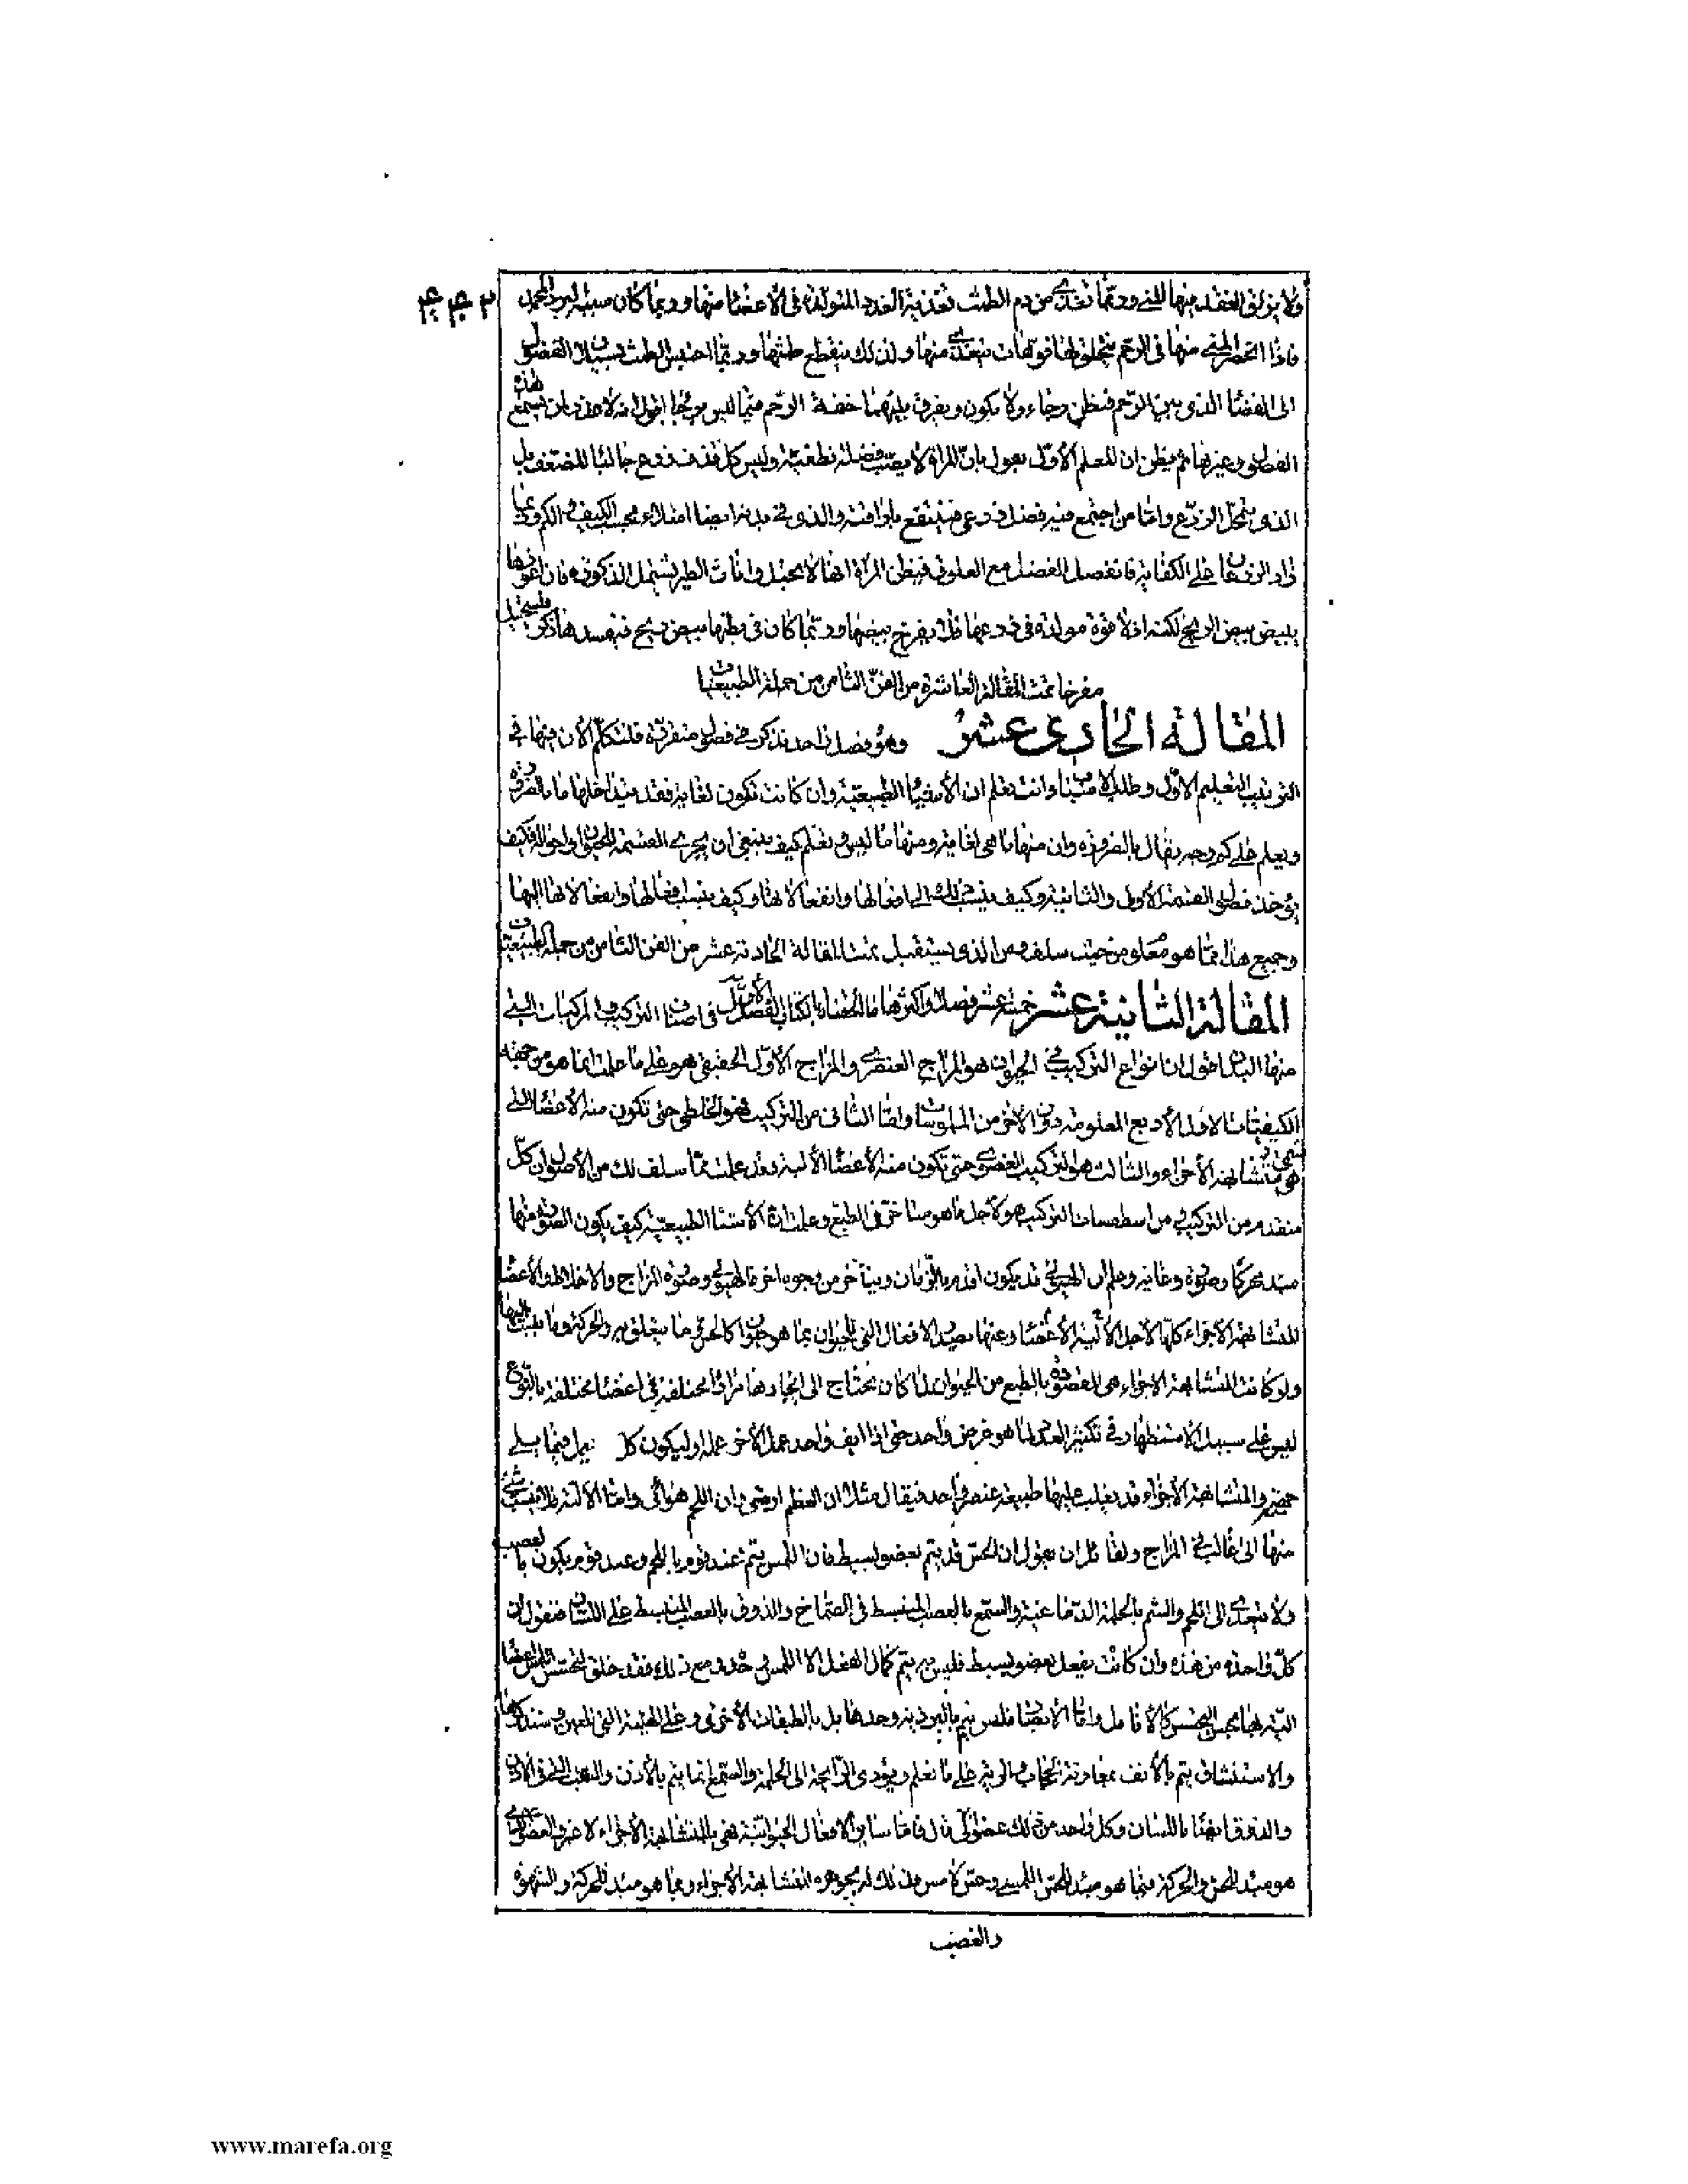 ٤٣٣
ولا يزلق العقد منها المنى وربما تغذى من دم الطمث تغذية الغدد المتولدة فى الأعضا منها وربما كان سببه لبرد المجمد
فاذا انحصر المنى منها فى الرحم يتخلق لها فوهات يتغذى منها ولذلك ينقطع طمثها وربما احتبس الطمث بسيلان الفضول
الى الفضا الذى بين الرحم فيظن رجاء ولا يكون ويفرق بينهما خفة الرحم فيما ليس برجا اقول انه لا حق بان يسمع هذه
الفصول وغيرها ثم يظن ان المعلم الأول يقول بان المراة لا يصب فضلة نطفية وليس كل قذف زرع جالبا للضعف بل
الذى يتحل الزرع واما من اجتمع فيه فضل زرعى فينتفع باراقته والذى فى بدنه ايضا امتلاء بحسب الكيف والكم وربما
زاد الزرعان على الكفاية فانفصل الفضل مع العلوق فيظن المرأة انها لا تحبل واناث الطير تشتمل الذكورة فان اعوزها
يبيض بيض الريح لكنه اذ لا قوة مولدة فى زرعها فلا يفرخ بيضها وربما كان فى بطنها بيض ريح فيفسدها ذكر فيستحيل
مفرخا تمت المقالة العاشرة من الفن الثامن من جملة الطبيعيات
المقالة الحادى عشر وهو فصل واحد نذكر فى فصول متفرقة فلنتكلم الآن منها فى
الترتيب التعليم الاول وطلب الاسباب وانت تعلم ان الأشياء الطبيعية وان كانت تكون لغاية فقد يتداخلها ما بالضرورة
ويعلم على كم وجه يقال بالضرورة وان منها ما هى لغاية ومنها ما ليس ويعلم كيف ينبغى ان يجرى القسمة للحيوان واحواله وكيف
يؤخذ فصول القسمة الأولى والثانية وكيف ينسب تلك الى افعالها وانفعالاتها وكيف ينسب افعالها وانفعالاتها اليها
وجميع هذا مما هو معلوم من حيث سلف ومن الذى يستقبل تمت المقالة الحادية عشر من الفن الثامن من جملة الطبيعيات
المقالة الثانية عشر خمسة عشر فصلا واكثرها ما ألحقناه بالكتاب الفصل الأول فى اصناف التركيب والمركبات التى
منها البدن اقول ان انواع التركيب فى الحيوان هو المزاج العنصرى والمزاج الأول الحقيقى هو على ما علمت انما هو من جهة
الكيفيات الاول الأربع المعلومة دون الاخر من الملموسات واما الثانى من التركيب فهو الخلطى حتى تكون منه الأعضا التى
هى متشابهة الأجزاء والثالث هو التركيب العضوى حتى تكون منه الأعضا الآلية وقد علمت مما سلف لك من الأصول ان كل
متقدم من التركيب من اسطقسات التركيب هو لأجل ما هو متأخر فى الطبع وعلمت ان الأشيا الطبيعية كيف يكون القوى منها
مبد محركا وصورة وغاية ويعلم ان الهيولى قد يكون اقدم بالزمان ويتأخر من وجوه اخر فالهيولى وصورة المزاج والاخلاط والأعضا
المتشابهة الأجزاء كلها لأجل الآلية الأعضا وعنها يصدر الافعال التى للحيوان بما هو حيوان كالحس وما يتعلق به والحركة وما ينسب اليها
ولو كانت المتشابهة الاجزاء هى المقصودة بالطبع من الحيوان لما كان يحتاج الى ايجادها مرارا مختلفة فى اعضا مختلفة بالنوع
ليس على سبيل الاستظهار فى تكثير العدد لما هو غرض واحد حتى اذا ايف واحد عمل الآخر عمله او ليكون كل يعمل فيما يلى
حيزه والمتشابهة الأجزاء قد يغلب عليها طبيعة عنصر واحد فيقال مثلا ان العظم ارضى وان اللحم هوائى واما الآلية فلا ينسب شئ
منها الى غالب فى المزاج ولقائل ان يقول ان الحس قد يتم بعضو بسيط فان اللمس يتم عند قوم باللحم وعند قوم يكون بالعصب
ولا يتعدى الى اللحم والشم بالحلمة الدماغية والسمع بالعصب المنبسط فى الصماخ والذوق بالعصب المنبسط على اللسان فنقول ان
كل واحدة من هذه وان كانت يفعل بعضو بسيط فليس به يتم كمال الفعل الا اللمس وحده ومع ذلك فقد خلق لتحسس اللمس اعضا
آلية بها يجس المجس كالأنامل واما الأبصار فليس يتم بالبردية وحدها بل بالطبقات الأخرى وعلى الهيئة التى للعين وسنذكرها
والاستنشاق يتم بالأنف بمعاونة الحجاب والرية على ما تعلم ويؤدى الرائحة الى الحلمة والسمع انما يتم بالأذن والثقب الذى فى الأذن
والذوق ايضا باللسان وكل واحد من تلك عضو آلى قال فاما سائر الأفعال الحيوانية فهى بالمتشابهة الأجزاء لا غير والعضو الذى
هو مبد للحس والحركة فبما هو مبد للحس اللمسى وحس لامس فان ذلك له بجوهره المتشابهة الأجزاء وبما هو مبد للحركة والشهوة
والغضب
www.marefa.org